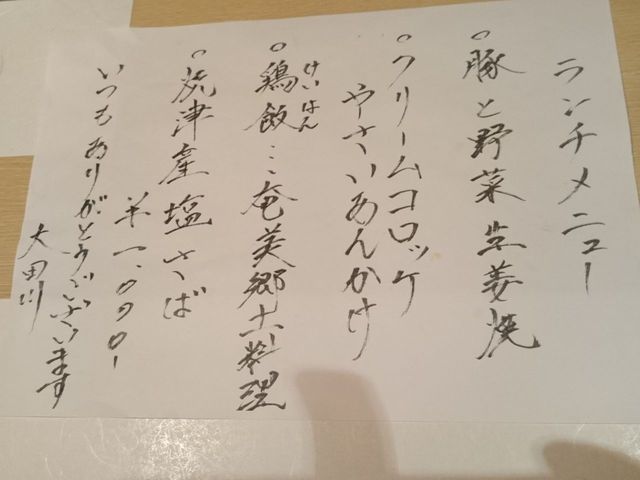 ランチメニュー
○豚と野菜生姜焼
○クリームコロッケ
やさいあんかけ
○鶏飯…奄美郷土料理
けいはん
○焼津産塩さば
¥一.000-
いつもありがとうございます
大田川